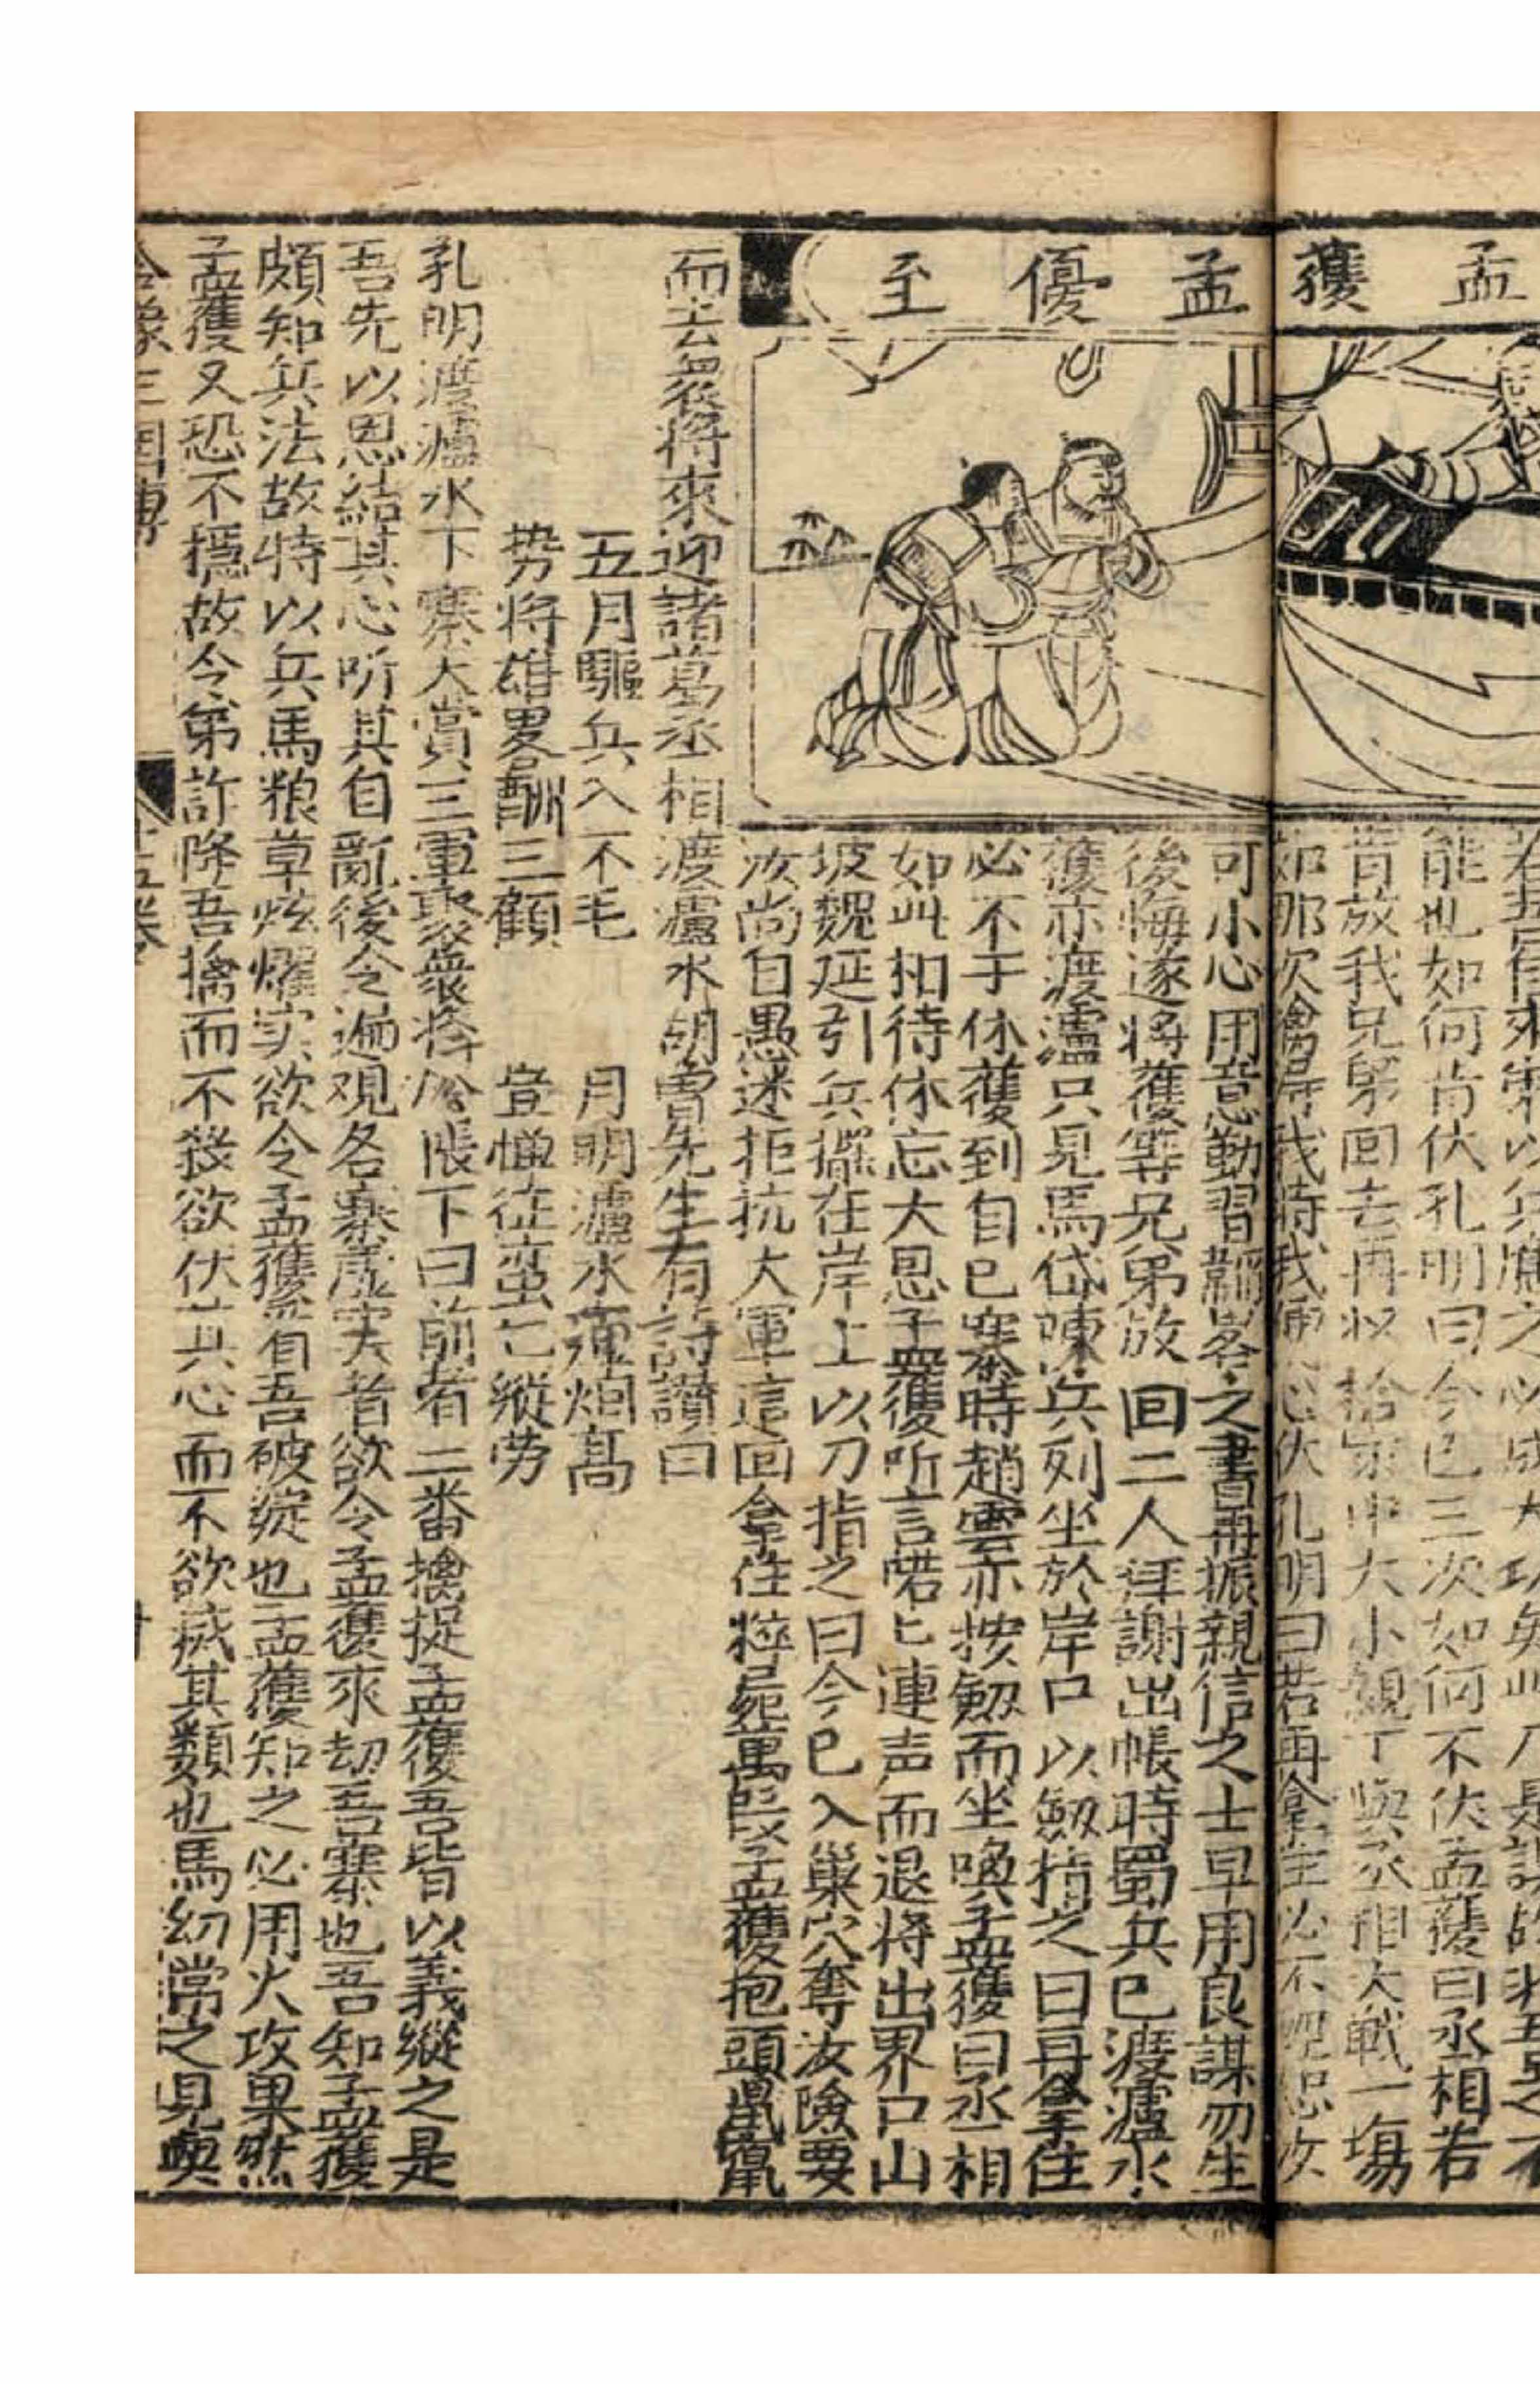 孟獲
孟優至
能也如何肯伏孔明曰今已三次如何不伏孟獲曰丞相若
肯放我兄弟回去再收拾家中大小親丁與丞相大戰一場
如那次擒居我時我傾心伏孔明曰若再拿住必不輕恕汝
可小心用意勤習韜畧之書再振親信之士早用良謀勿生
後悔遂將獲等兄弟放回二人拜謝出帳時蜀兵已渡瀘水
獲亦渡瀘只見馬岱陳兵列坐於岸口以劔指之曰再拿住
必不于休獲到自己寨時趙雲亦按劔而坐喚孟獲曰丞相
如此扣待休忘大恩孟獲听言喏匕連声而退將出界口山
坡魏延引兵擺在岸上以刀指之曰今已入巢穴奪汝險要
汝尚自愚迷拒抗大軍這回拿住粹屍萬段孟獲抱頭鼠竄
而去後將來迎諸葛丞相渡瀘水胡曾先生有詩讃曰
五月驅兵入不毛 月明瀘水瘴烟高
势將雄畧酬三顧 豈憚征蛮七縱劳
孔明渡瀘水下寨大賞三軍聚衆将於帳下曰前者二番擒捉孟獲吾皆以義縱之是
吾先以恩結其心听其自亂後令遍观各寨虚实者欲令孟獲來劫吾寨也吾知孟獲
頗知兵法故特以兵馬粮草炫耀实欲令孟獲看吾破綻也孟獲知之必用火攻果然
孟獲又恐不穩故令弟詐降吾擒而不殺欲伏其心而不欲滅其類也馬纫常之見與
全像三国傳 十五卷